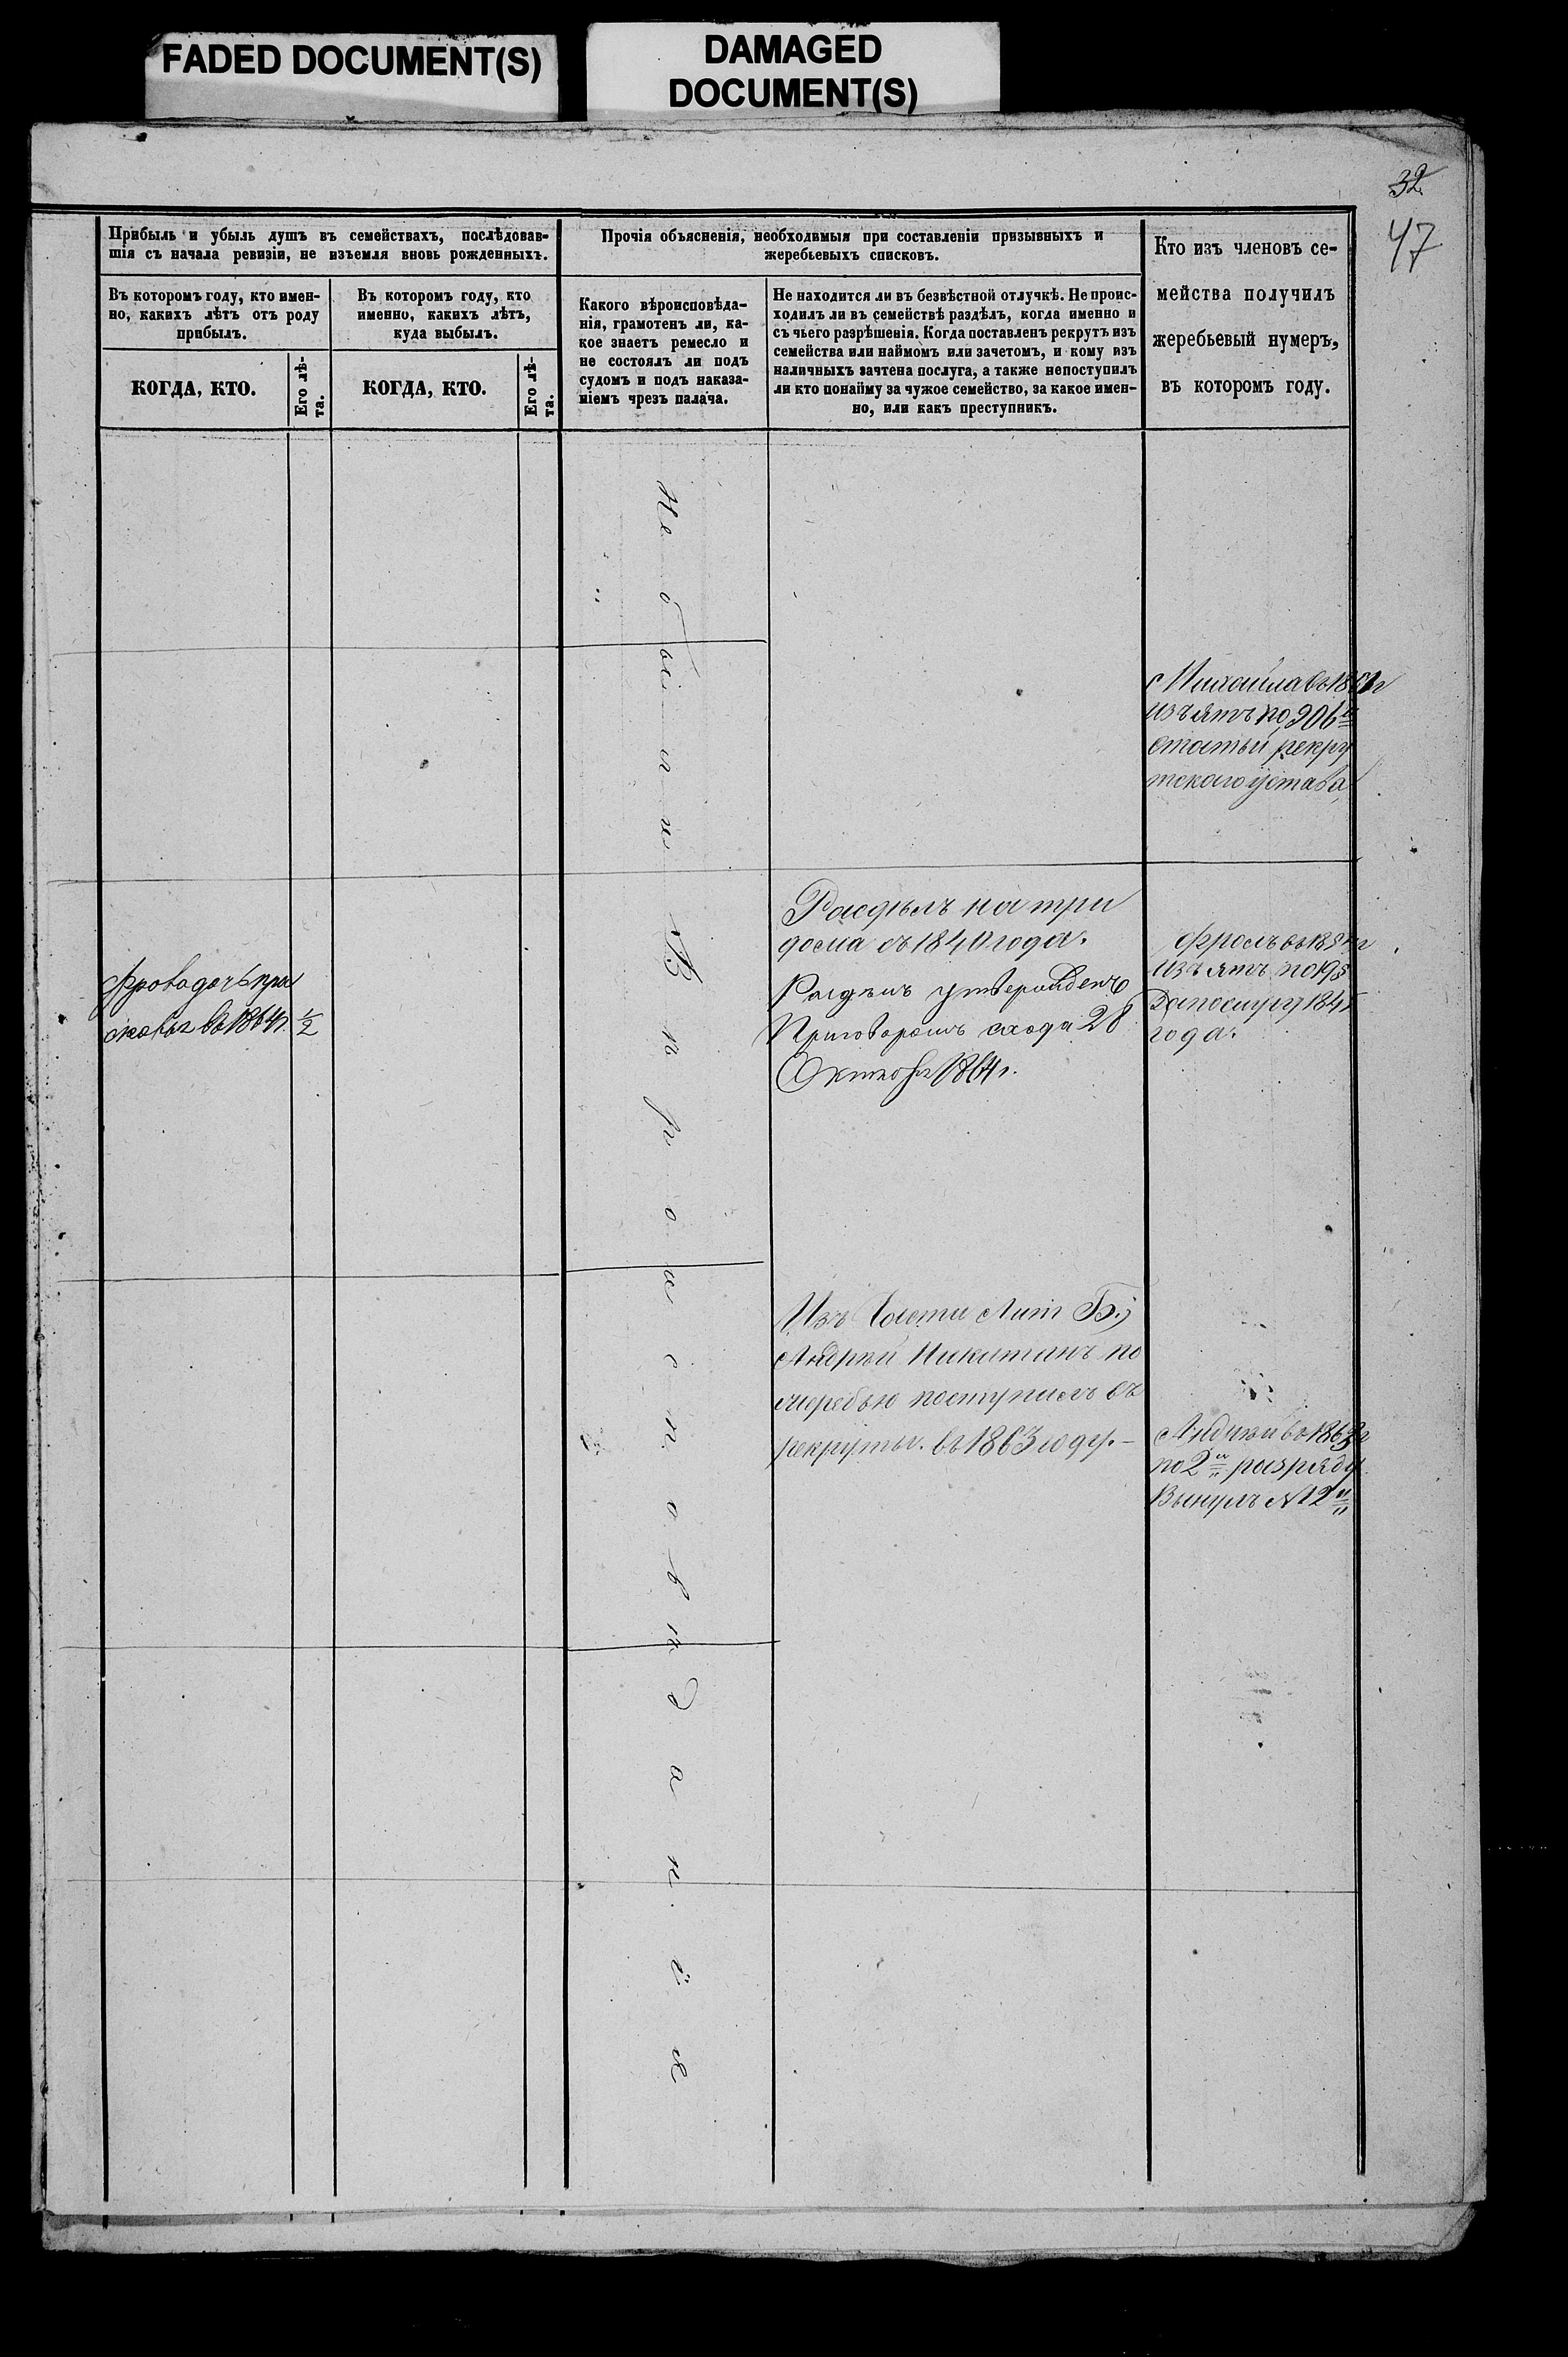 FADED DOCUMENT(S)
DAMAGED
DOCUMENT(S)
32
47
Прибыль и убыль душъ въ семействахъ, послѣдовав-
шія съ начала ревизіи, не изъемля вновь рожденныхъ.
Въ которомъ году, кто имен-
но, какихъ лѣтъ отъ роду
прибылъ.
Въ которомъ году, кто
именно, какихъ лѣтъ,
куда выбылъ.
КОГДА, КТО.
Его лѣ-
та.
КОГДА, КТО.
Его лѣ-
та.
Прочія объясненія, необходимыя при составленіи призывныхъ и
жеребьевыхъ списковъ.
Какого вѣроисповѣда-
нія, грамотенъ ли, ка-
кое знаетъ ремесло и
не состоялъ ли подъ
судомъ и подъ наказа-
ніемъ чрезъ палача.
Не находится ли въ безвѣстной отлучкѣ. Не проис-
ходилъ ли въ семействѣ раздѣлъ, когда именно и
съ чьего разрѣшенія. Когда поставленъ рекрутъ изъ
семейства или наймомъ или зачетомъ, и кому изъ
наличныхъ зачтена послуга, а также непоступилъ
ли кто понайму за чужое семейство, за какое имен-
но, или какъ преступникъ.
Кто изъ членовъ се-
мейства получилъ
жеребьевый нумеръ,
въ которомъ году.
вѣроисповѣданія
Михайла въ
изъятъ по 206й
статьи рекру
тскаго устава
Фрова дочь
въ 1864 г. 1/2
Раздѣлъ на три
дома съ 1840 года.
Раздѣлъ утвержденъ
Приговоромъ схода 28
Октября 1864 г.
Фролъ въ
Изъятъ по
послугу
года.
Изъ Части Лит Б.
Андрей Никитинъ по
жеребью поступилъ въ
рекруты. въ 1863 году. –
Андрей въ 1863 г
по 2й разряду
Вынулъ №